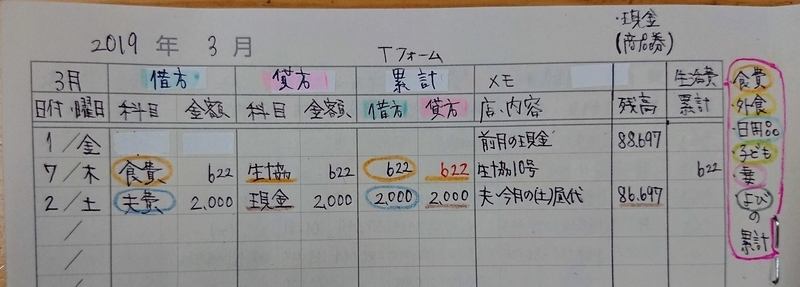 2019 年 3 月
Tフォーム
・現金
(商品券)
3月 借方 貸方 累計 メモ 生活費
日付・曜日 科目 金額 科目 金額 借方 貸方 店・内容 残高 累計
1/金 前月の現金 88.697
7/木 食費 622 生協 622 622 622 生協10号 622
2/土 夫費 2,000 現金 2,000 2,000 2,000 夫・今月の(土)昼代 86.697
/
/
・食費
・外食
・日用品
・子ども
・妻
・よび
の
累計